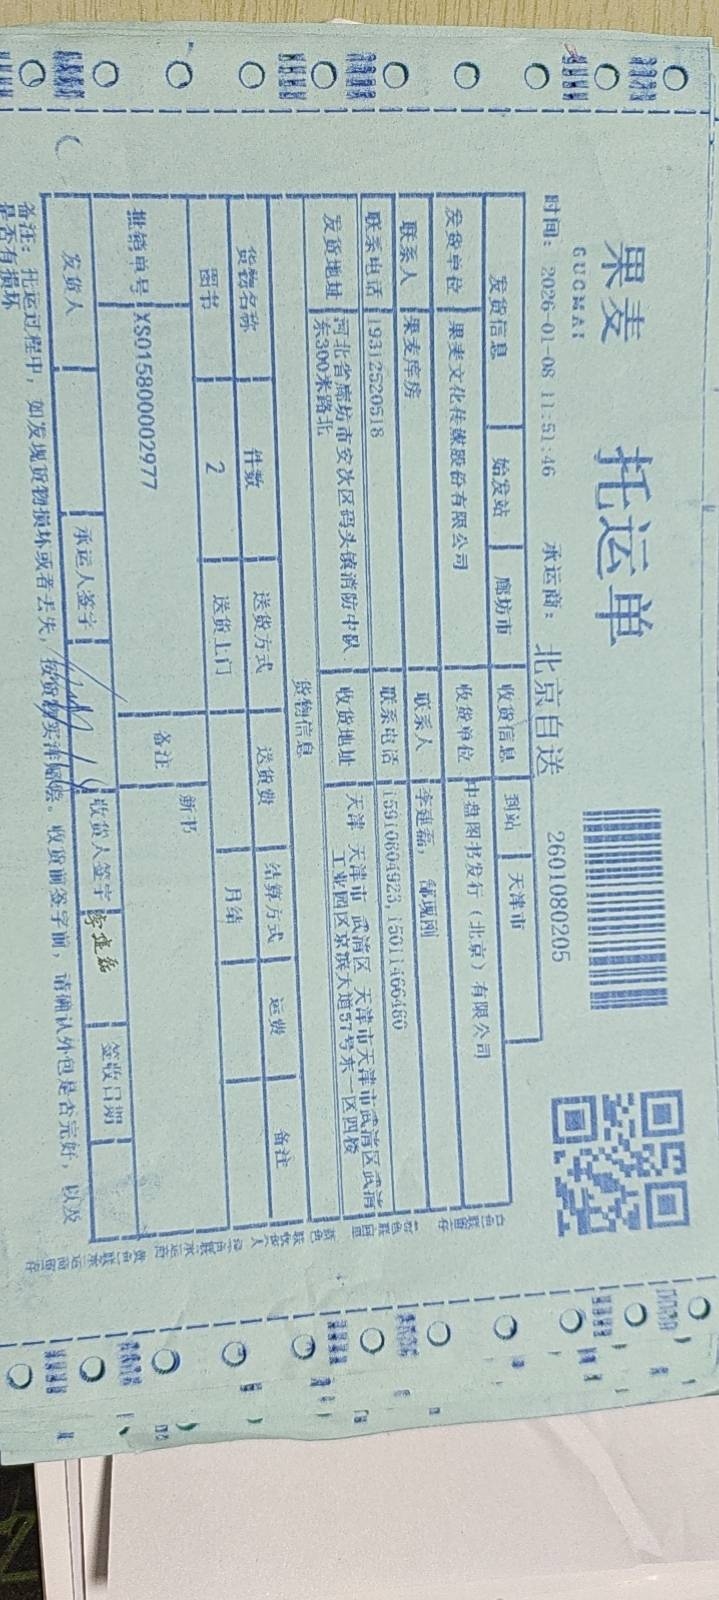 果麦
GUOMAI
托运单
时间： 2026-01-08 11:51:46 承运商： 北京自送 2601080205
发货信息 始发站 廊坊市 收货信息 到站 天津市
发货单位 果麦文化传媒股份有限公司 收货单位 中盘图书发行（北京）有限公司
联系人 果麦库房 联系人 李建磊，
联系电话 19312520518 联系电话 15910604923,15011466460
发货地址 河北省廊坊市安次区码头镇消防中队
东300米路北
收货地址 天津 天津市 武清区 天津市天津市武清区武清
工业园区京滨大道57号东一区四楼
货物信息
货物名称 件数 送货方式 送货费 结算方式 运费 备注
图书 2 送货上门 月结
批销单号 XS015800002977 备注 新书
发货人 承运人签字 收货人签字 李建磊 签收日期
备注：托运过程中，如发现货物损坏或者丢失，按货物实洋赔偿。收货前签字前，请确认外包是否完好，以及
是否有损坏